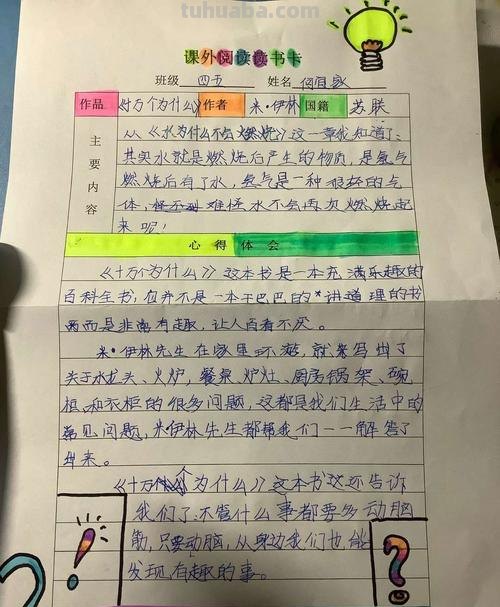 tuhuaba.com
课外阅读读书卡
班级 四五 姓名
作品 《十万个为什么》 作者 米·伊林 国籍 苏联
主要内容
从《水为什么不会燃烧》这一章我知道了、
其实水就是燃烧后产生的物质，是氢气
燃烧后有了水，氢气是一种很轻的气
体，难怪水不会再次燃烧起
来呢！
心得体会
《十万个为什么》这本书是一本充满乐趣的
百科全书，但并不是一本干巴巴的"讲道理的书
而是非常有趣，让人百看不厌。
米·伊林先生在家里环游，就来写出了
关于水龙头、火炉，餐桌，炉灶、厨房锅架、碗
柜和衣柜的很多问题，这都是我们生活中的
常见问题，米伊林先生都帮我们一一解答了
出来。
《十万个为什么》这本书还告诉
我们了：不管什么事都要多动脑
筋，只要动脑，从身边我们也能
发现有趣的事。